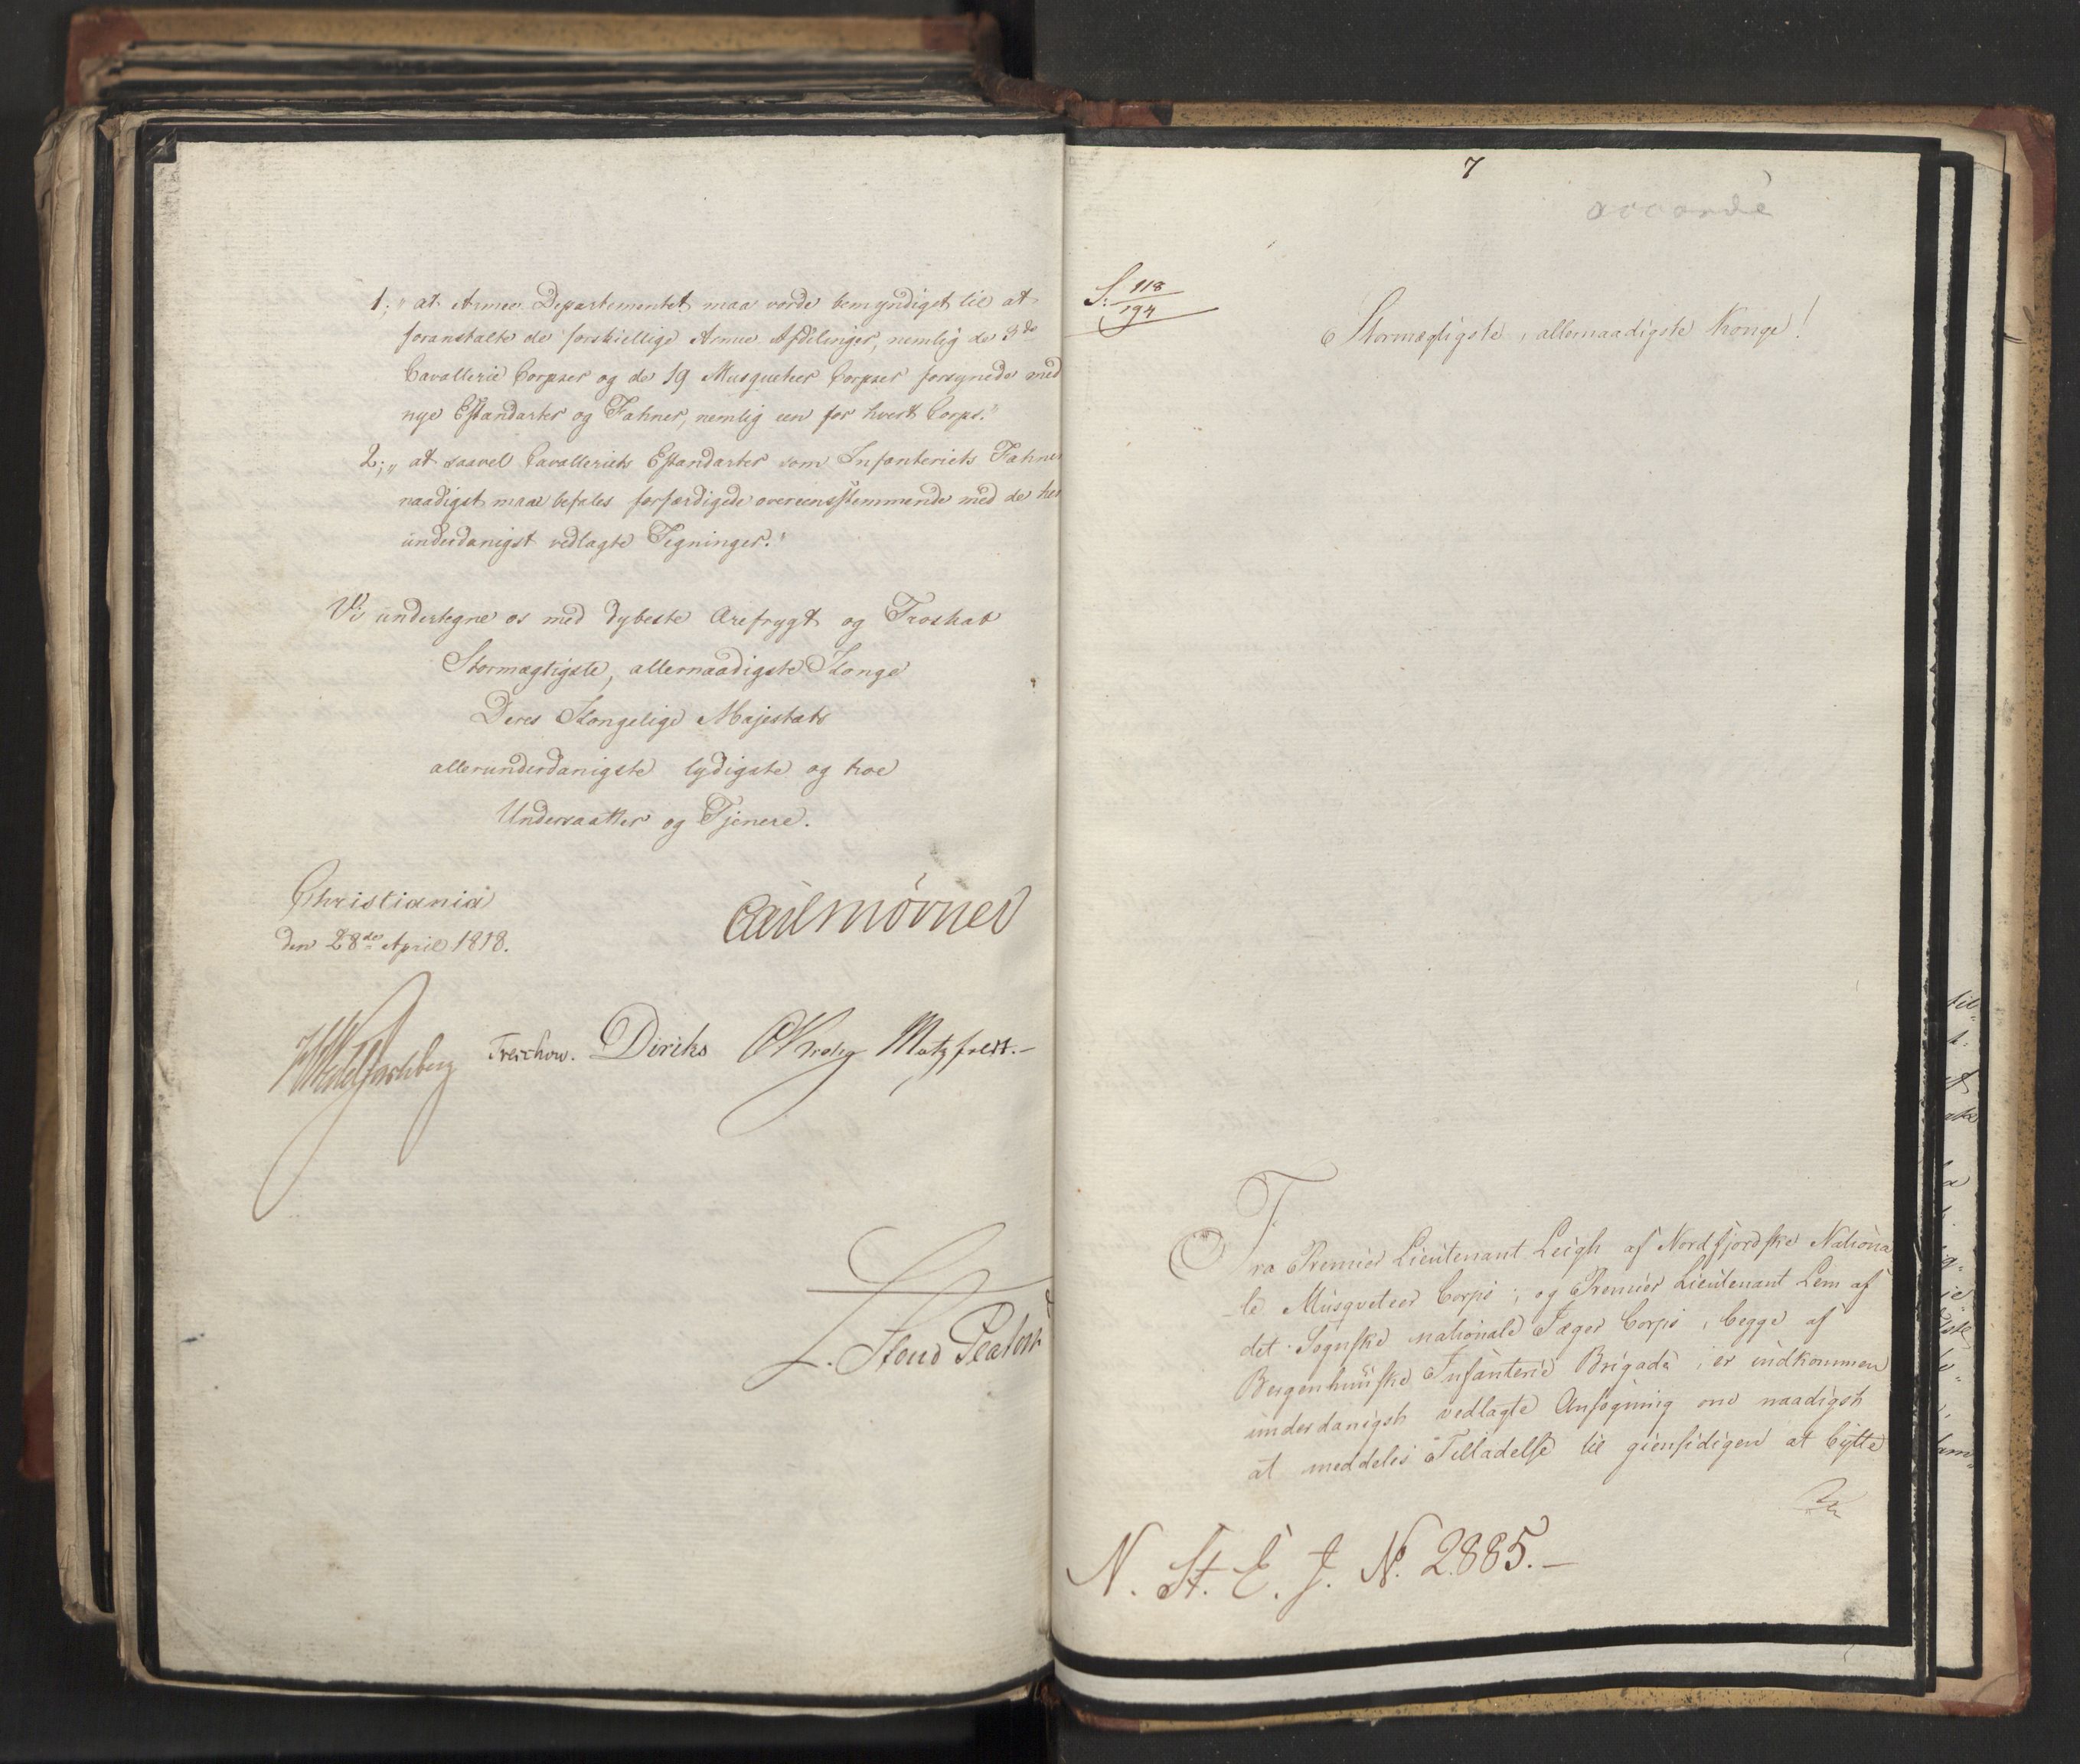 1, „at Armee Departementet maa vorde bemyndiget til at
foranstalte de forskiellige Armee Afdelinger, nemlig de 3de
Cavallerie Corpser og de 19 Musqueteer Corpser forsynede med
nye Estandarter og Fahner, nemlig een for hvert Corps."
2, „at saavel Cavalleriets Estandarter som Infanteriets Fahner
naadigst maae befales forfærdigede overeensstemmende med de her
underdanigst vedlagte Tegninger."
Vi undertegne os med dybeste Ærefrygt og Troskab
Stormægtigste, allernaadigste Konge
Deres Kongelige Majestæts
allerunderdanigste lydigste og troe
Undersaatter og Tjenere.
Christiania
den 28de April 1818.
Carl Mörner
Wedel Jarlsberg Treschow. Diriks Krohg Motzfeldt.-
7
accordé
S: 118
194
Stormægtigste, allernaadigste Konge!
Fra Premier Lieutenant Leigh af Nordfjordske Nationa
-le Musqveteer Corps, og Premier Lieutenant Lem af
det Sognske nationale Jæger Corps, begge af
Bergenhuuske Infanterie Brigade, er indkommen
underdanigst vedlagte Ansøgning om naadigst
at meddeles Tilladelse til giensidigen at bytte
N. St. E. J. No. 2885.-